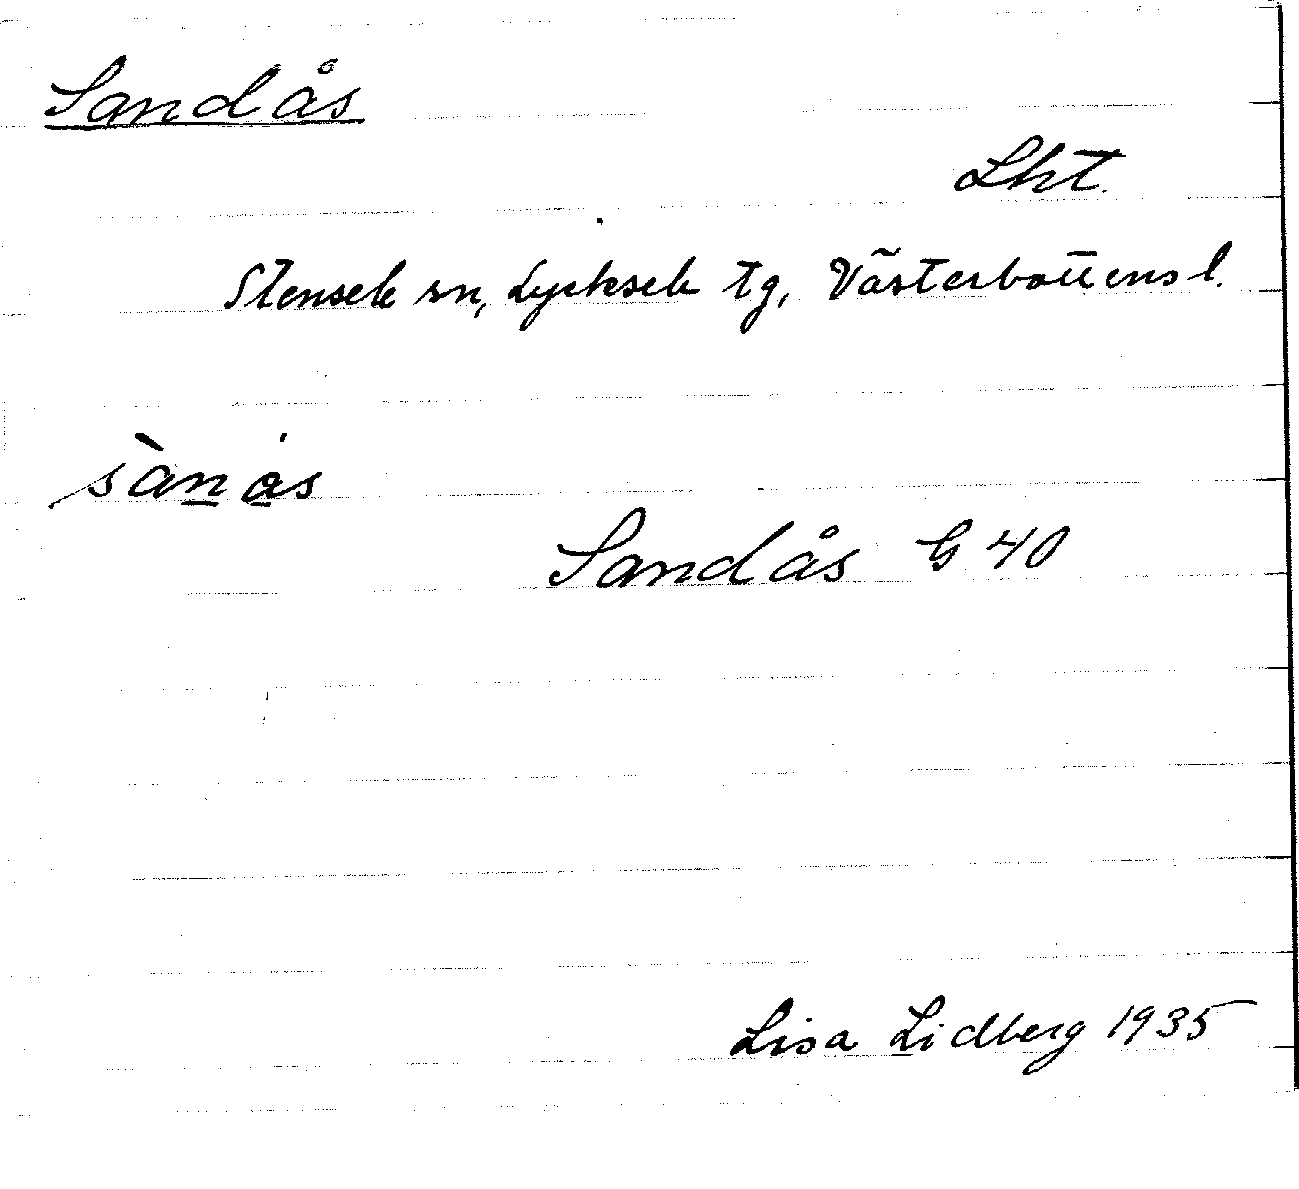 Sandås
Lht.
Stensele sn, Lycksele tg, Västerbottens l.
sànås
Sandås G 40
Lisa Lidberg 1935